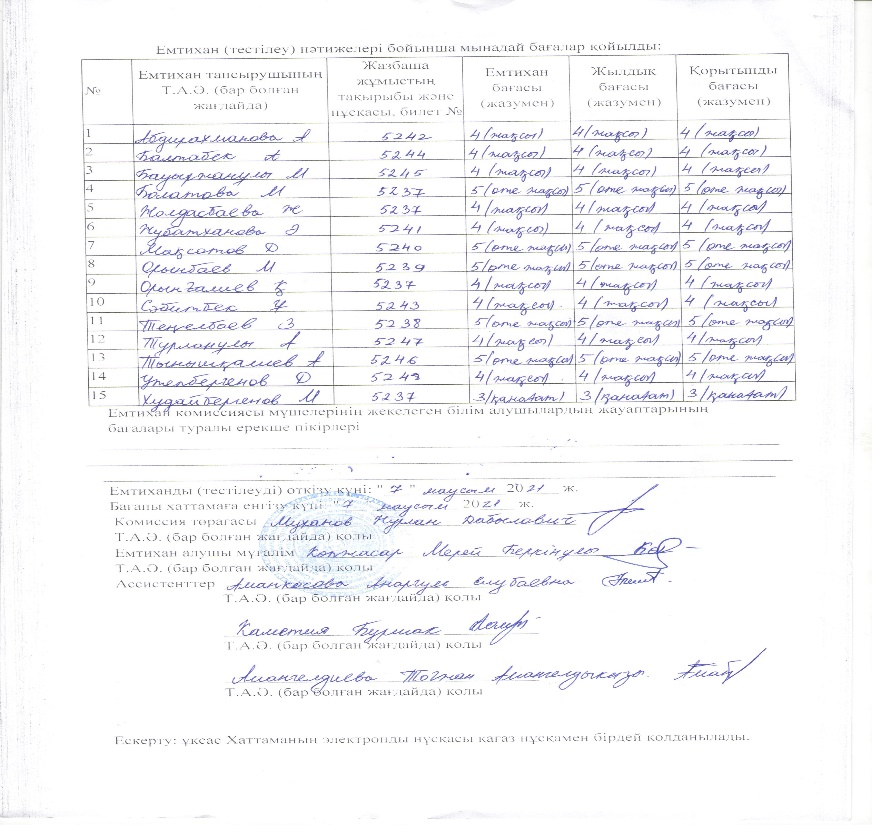 Емтихан (тестілеу) нәтижелері бойынша мынадай бағалар қойылды:
№ Емтихан тапсырушының Т.А.Ә. (бар болған жағдайда) Жазбаша жұмыстың тақырыбы және нұсқасы, билет № Емтихан бағасы (жазумен) Жылдық бағасы (жазумен) Қорытынды бағасы (жазумен)
1 Абдирахманова А 5242 4 (жақсы) 4 (жақсы) 4 (жақсы)
2 Балтабек А 5244 4 (жақсы) 4 (жақсы) 4 (жақсы)
3 Бауыржанулы М 5245 4 (жақсы) 4 (жақсы) 4 (жақсы)
4 Болатова М 5237 5 (өте жақсы) 5 (өте жақсы) 5 (өте жақсы)
5 Жолдасбаева Ж 5237 4 (жақсы) 4 (жақсы) 4 (жақсы)
6 Жубатханова Ә 5241 4 (жақсы) 4 (жақсы) 4 (жақсы)
7 Мақсотов Д 5240 5 (өте жақсы) 5 (өте жақсы) 5 (өте жақсы)
8 Орынбаев М 5239 5 (өте жақсы) 5 (өте жақсы) 5 (өте жақсы)
9 Орынғалиев Қ 5237 4 (жақсы) 4 (жақсы) 4 (жақсы)
10 Сәбитбек 5243 4 (жақсы) 4 (жақсы) 4 (жақсы)
11 Теңелбаев З 5238 5 (өте жақсы) 5 (өте жақсы) 5 (өте жақсы)
12 Турланулы А 5247 4 (жақсы) 4 (жақсы) 4 (жақсы)
13 Тынышқалиев А 5246 5 (өте жақсы) 5 (өте жақсы) 5 (өте жақсы)
14 Утепбергенов Д 5248 4 (жақсы) 4 (жақсы) 4 (жақсы)
15 Худайбергенов М 5237 3 (қанағат) 3 (қанағат) 3 (қанағат)
Емтихан комиссиясы мүшелерінің жекелеген білім алушылардың жауаптарының
бағалары туралы ерекше пікірлері
Емтиханды (тестілеуді) өткізу күні: " 7 " маусым 2021 ж.
Бағаны хаттамаға енгізу күні: " 7 маусым 2021 ж.
Комиссия төрағасы Муханов Нурлан Дабылович
Т.А.Ә. (бар болған жағдайда) қолы
Емтихан алушы мұғалім Қонжасар Мерей Беркінұлы
Т.А.Ә. (бар болған жағдайда) қолы
Ассистенттер Аманкосова Анаргуль Елубаевна
Т.А.Ә. (бар болған жағдайда) қолы
Т.А.Ә. (бар болған жағдайда) қолы
Амангелдиева Тогжан Амангелдықызы.
Т.А.Ә. (бар болған жағдайда) қолы
Ескерту: ұқсас Хаттаманың электронды нұсқасы қағаз нұсқамен бірдей қолданылады.